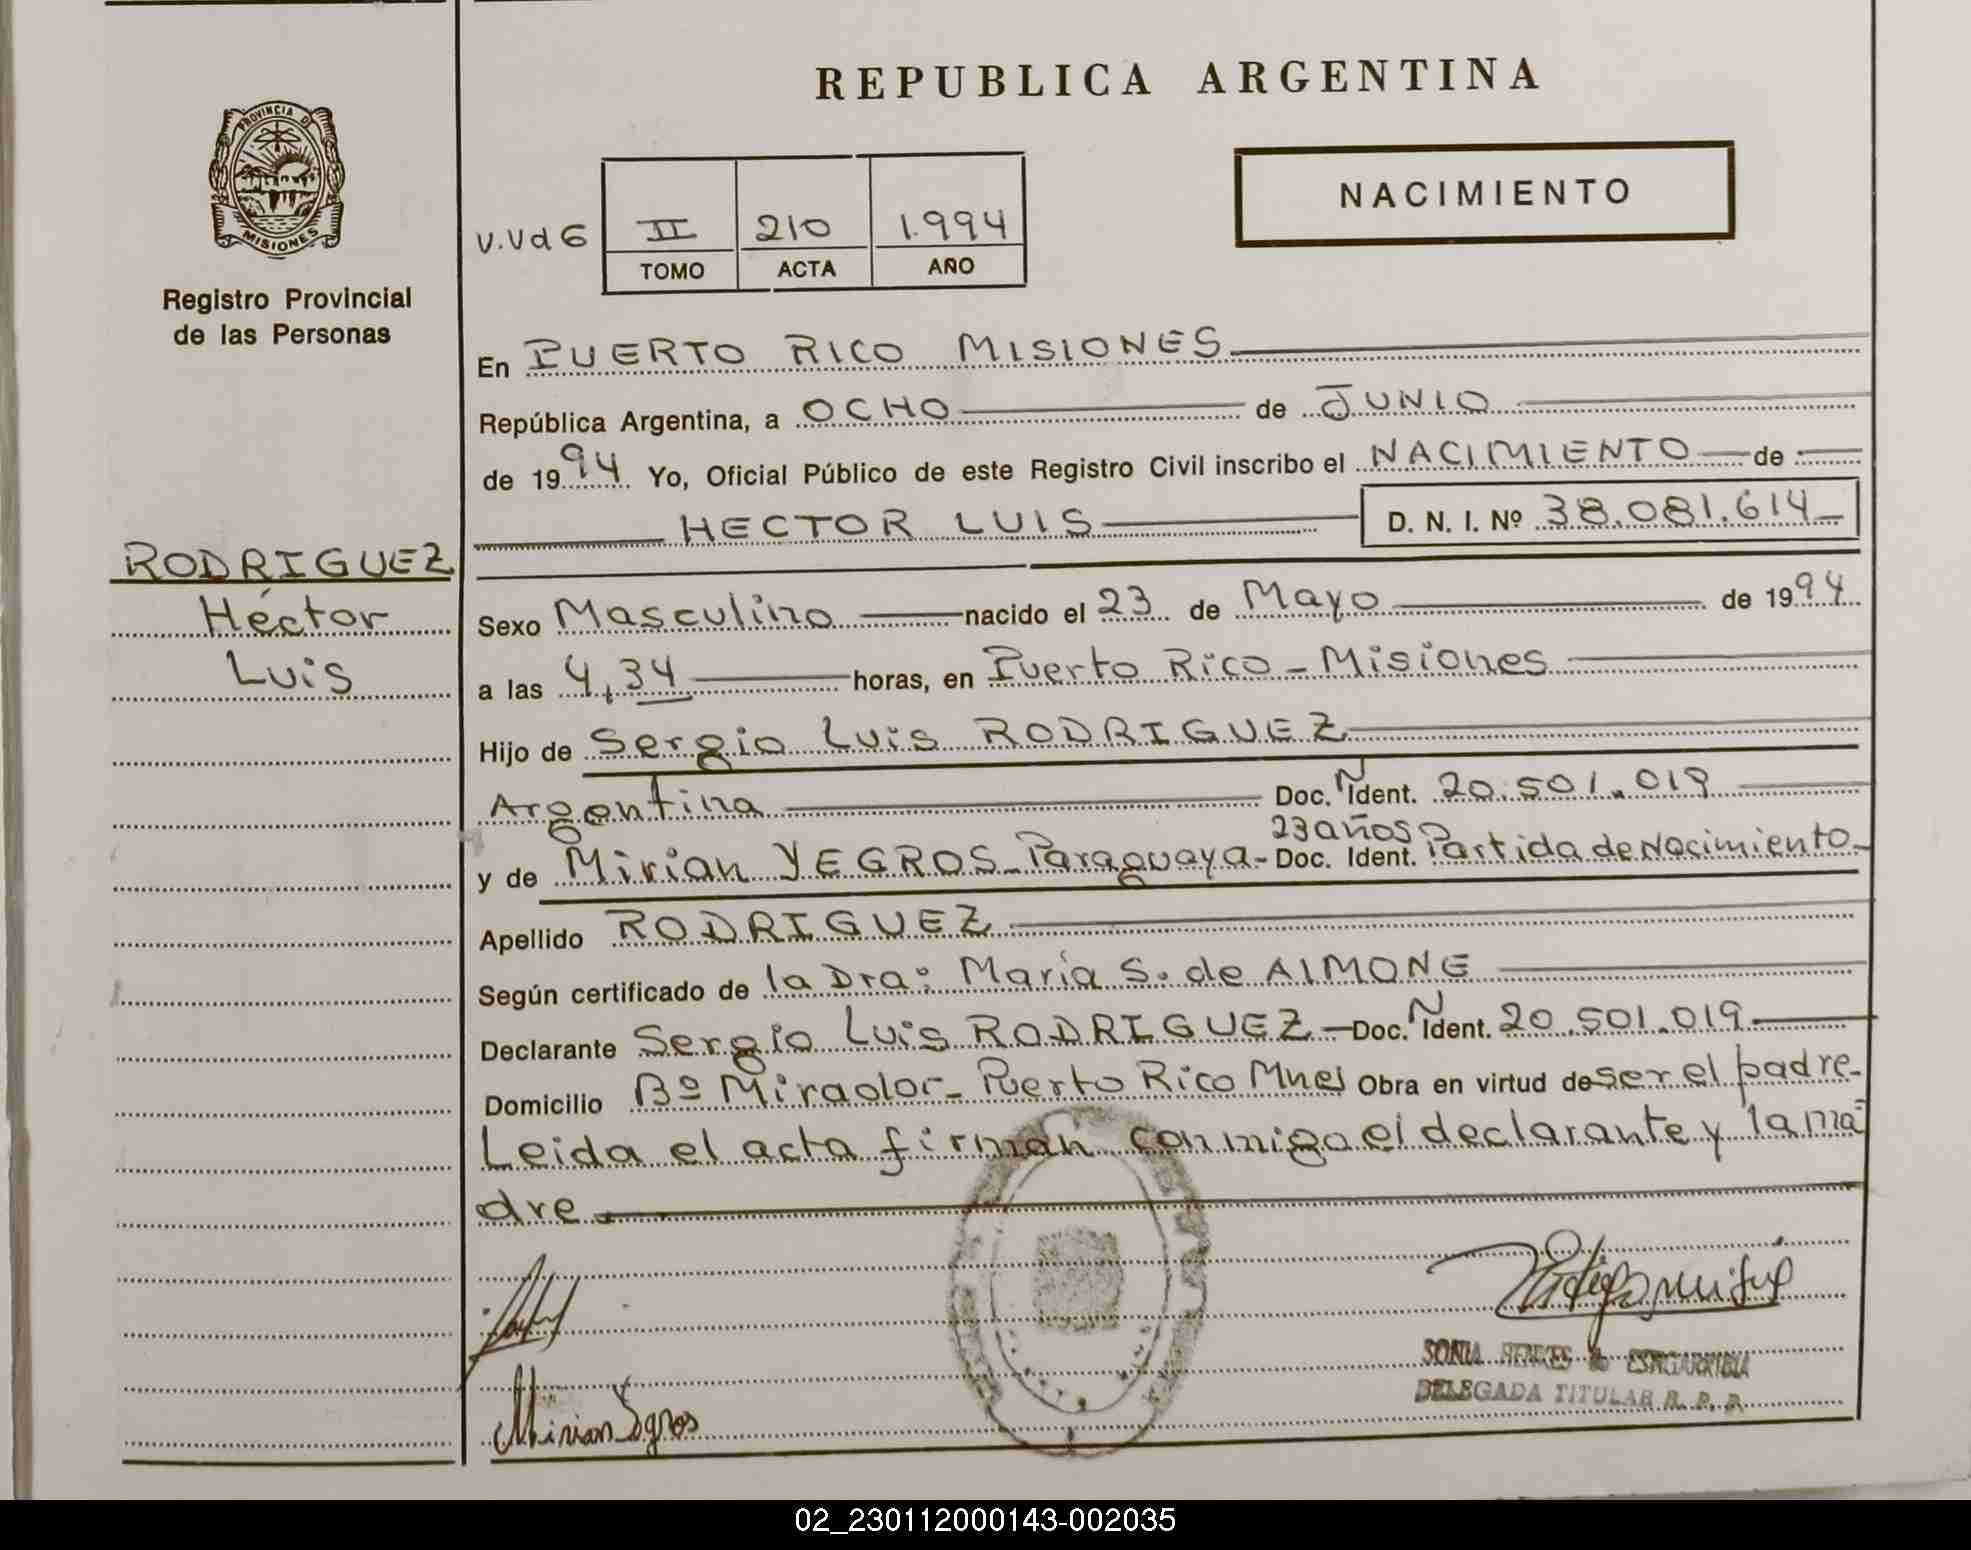 REPUBLICA ARGENTINA
PROVINCIA D
MISIONES
Registro Provincial
de las Personas
NACIMIENTO
V.VdG
II 210 1.994
TOMO ACTA AÑO
En PUERTO RICO MISIONES
República Argentina, a OCHO de JUNIO
de 1994 Yo, Oficial Público de este Registro Civil inscribo el NACIMIENTO de
HECTOR LUIS D. N. I. Nº 38.081.614
RODRIGUEZ
Héctor
Luis
Sexo Masculino nacido el 23 de Mayo de 1994
a las 4,34 horas, en Puerto Rico - Misiones
Hijo de Sergio Luis RODRIGUEZ
Argentina Doc. N Ident. 20.501.019
23 años
y de Mirian YEGROS - Paraguaya - Doc. Ident. Partida de Nacimiento
Apellido RODRIGUEZ
Según certificado de la Dra: María S. de AIMONE
Declarante Sergio Luis RODRIGUEZ - Doc. N Ident. 20.501.019
Domicilio Bº Mirador - Puerto Rico Mnes Obra en virtud de ser el padre
Leida el acta firman conmigo el declarante y la ma=
dre
Mirian Yegros
SONIA ESTIGARRIBIA
DELEGADA TITULAR R. P. P.
02_230112000143-002035